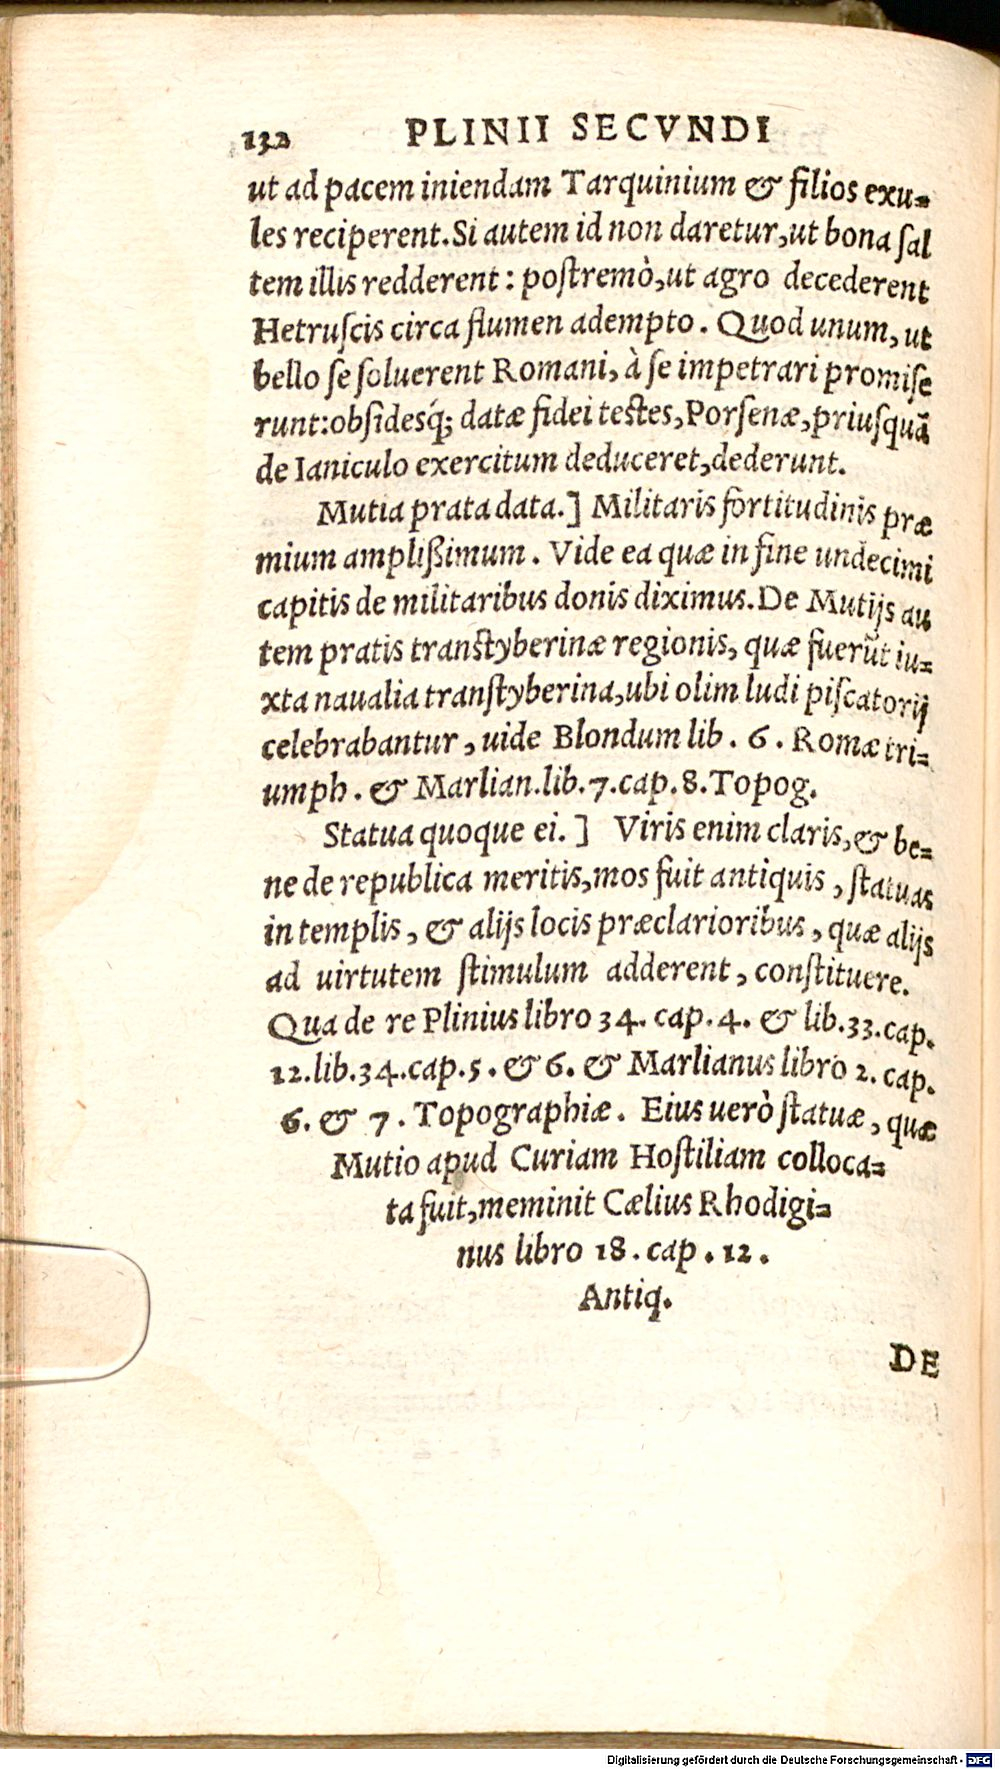 132 PLINII SECVNDI
ut ad pacem iniendam Tarquinium & filios exu-
les reciperent. Si autem id non daretur, ut bona ſal
tem illis redderent: poſtremò, ut agro decederent
Hetruſcis circa flumen adempto. Quod unum, ut
bello ſe ſoluerent Romani, à ſe impetrari promiſe
runt: obſidesq́; datæ fidei teſtes, Porſenæ, priuſquã
de Ianiculo exercitum deduceret, dederunt.
Mutia prata data.] Militaris fortitudinis præ
mium ampliſsimum. Vide ea quæ in fine undecimi
capitis de militaribus donis diximus. De Mutijs au
tem pratis tranſtyberinæ regionis, quæ fuerũt iu-
xta naualia tranſtyberina, ubi olim ludi piſcatorij
celebrabantur, uide Blondum lib. 6. Romæ tri-
umph. & Marlian. lib. 7. cap. 8. Topog.
Statua quoque ei.] Viris enim claris, & be-
ne de republica meritis, mos fuit antiquis, ſtatuas
in templis, & alijs locis præclarioribus, quæ alijs
ad uirtutem ſtimulum adderent, conſtituere.
Qua de re Plinius libro 34. cap. 4. & lib. 33. cap.
12. lib. 34. cap. 5. & 6. & Marlianus libro 2. cap.
6. & 7. Topographiæ. Eius uerò ſtatuæ, quæ
Mutio apud Curiam Hoſtiliam colloca-
ta fuit, meminit Cælius Rhodigi-
nus libro 18. cap. 12.
Antiq.
DE
Digitalisierung gefördert durch die Deutsche Forschungsgemeinschaft - DFG